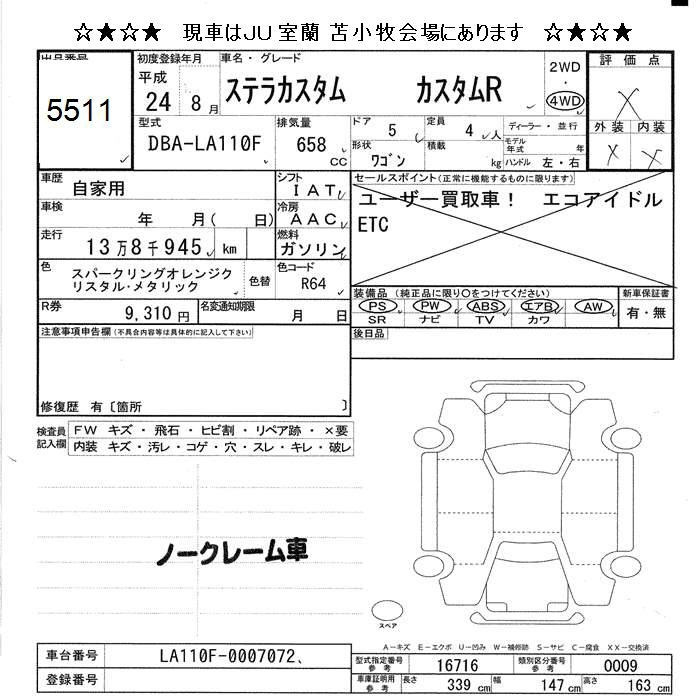 ☆★☆★ 現車はJU室蘭 苫小牧会場にあります ☆★☆★
出品番号
5511
初度登録年月
平成
24 8 月
車名・グレード
ステラカスタム カスタムR
2WD
・
4WD
評価点
X
外装 内装
X X
型式
DBA-LA110F
排気量
658 CC
ドア
5
定員
4 人
形状
ワゴン
積載
kg
ディーラー・並行
モデル年式 年
ハンドル 左・右
車歴
自家用
シフト
IAT
車検
年 月( 日)
冷房
AAC
走行
13万8千945 km
燃料
ガソリン
色
スパークリングオレンジク
リスタル・メタリック
色替
色コード
R64
R券
9,310 円
名変通知期限
月 日
セールスポイント(正常に機能するものに限ります)
ユーザー買取車! エコアイドル
ETC
装備品(純正品に限り○をつけてください)
PS PW ABS エアB AW
SR ナビ TV カワ
新車保証書
有・無
後日品
注意事項申告欄(不具合内容等は具体的に記入して下さい)
修復歴 有〔箇所 〕
検査員記入欄
FW キズ・飛石・ヒビ割・リペア跡・×要
内装 キズ・汚レ・コゲ・穴・スレ・キレ・破レ
ノークレーム車
スペア
A-キズ E-エクボ U-凹み W-補修跡 S-サビ C-腐食 XX-交換済
車台番号
LA110F-0007072、
登録番号
型式指定番号参考
16716
類別区分番号参考
0009
車庫証明用参考
長さ 339 cm 幅 147 cm 高さ 163 cm